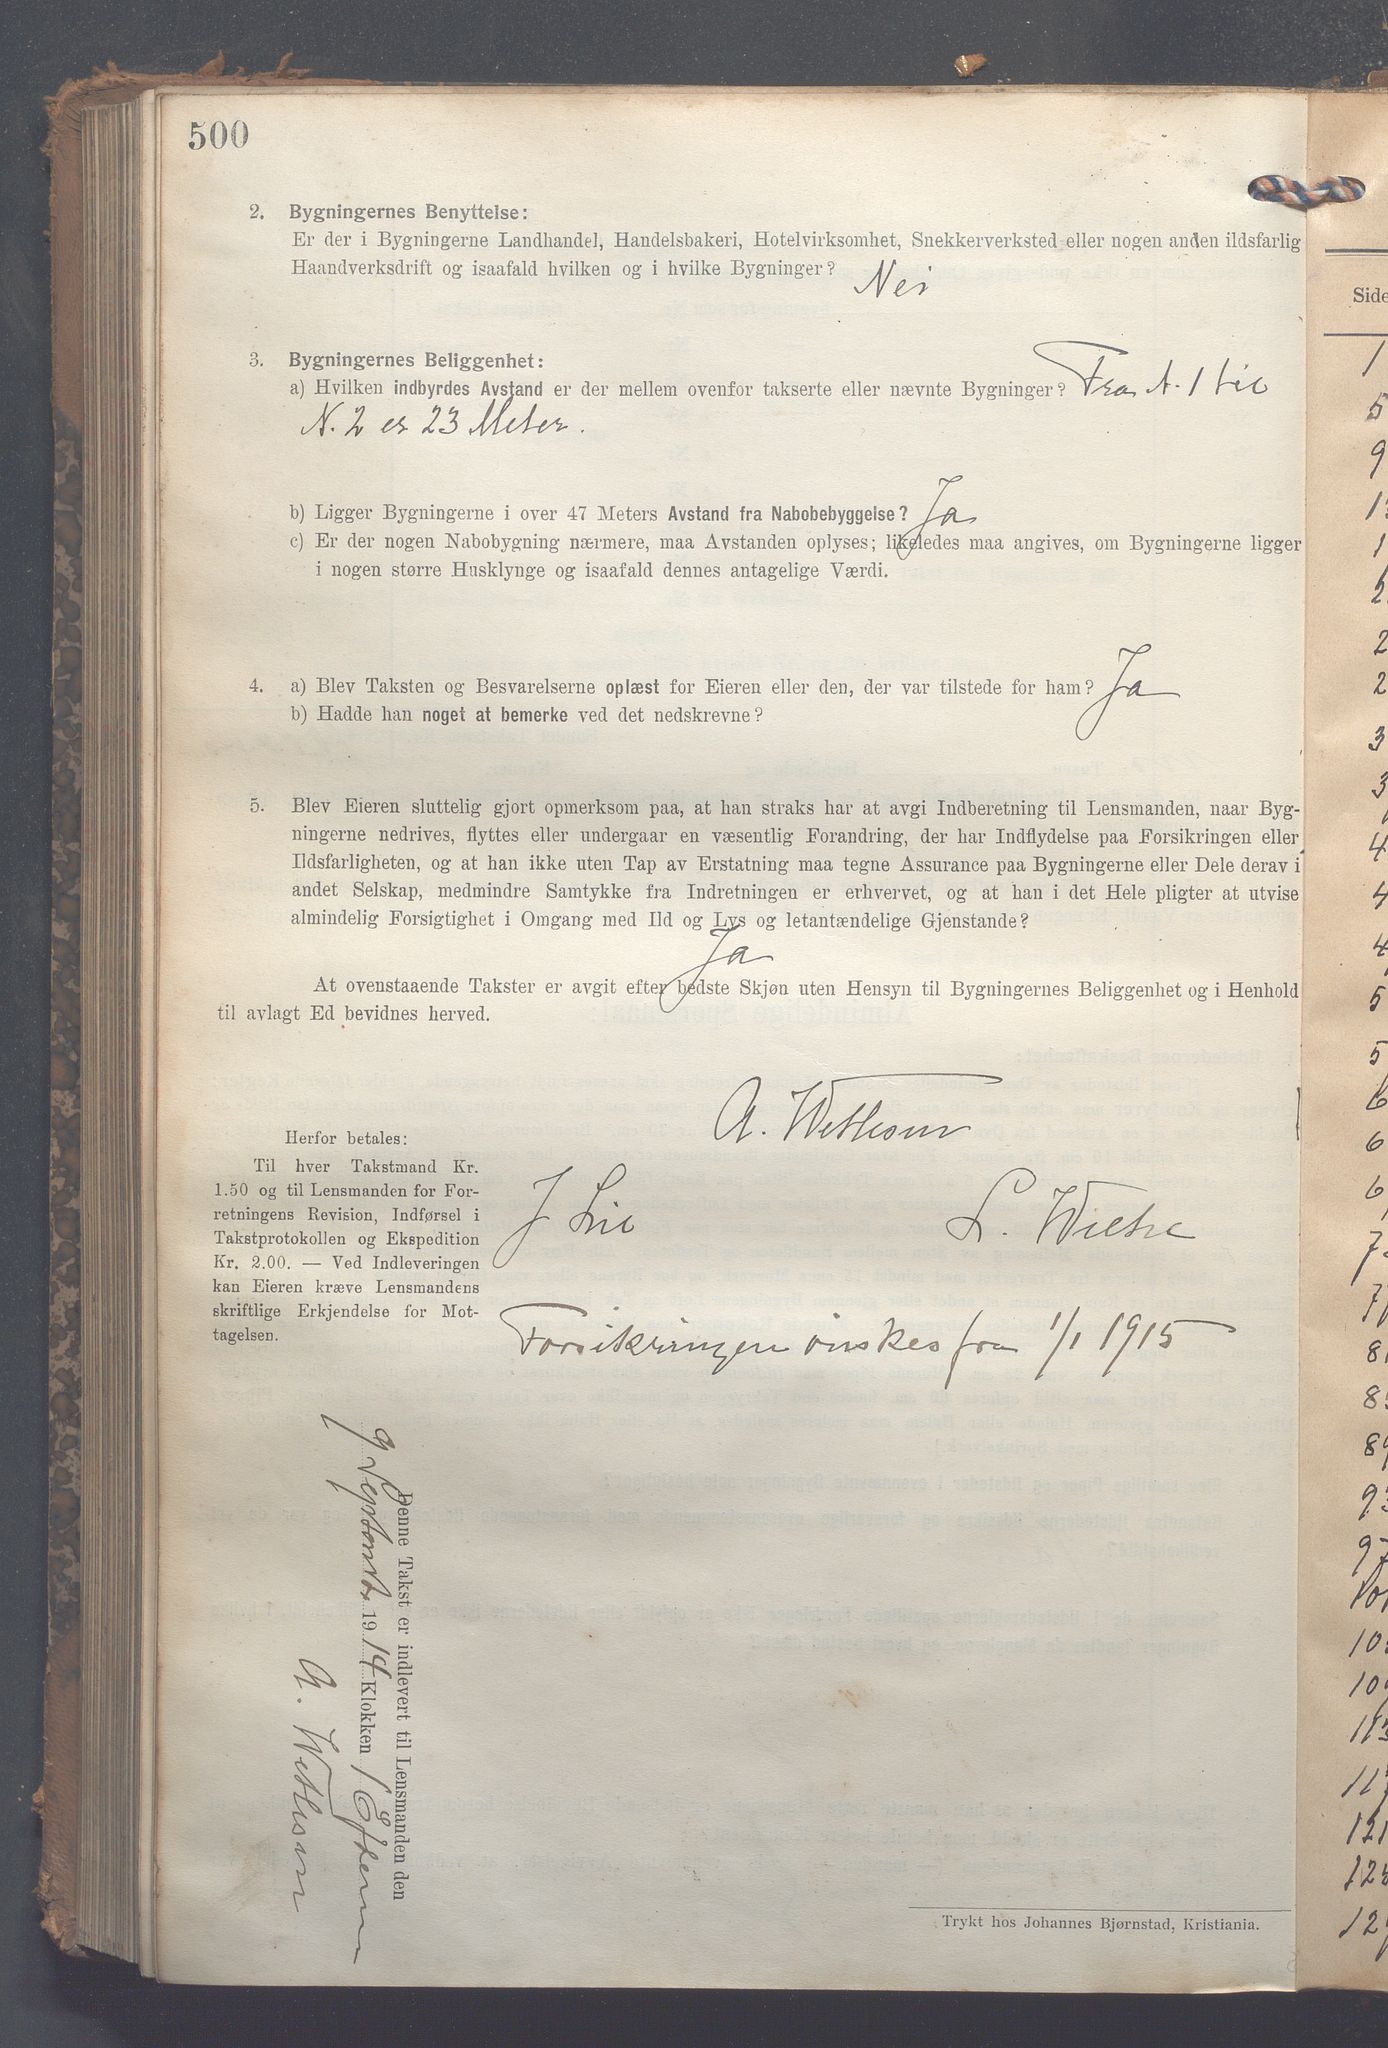 500
2. Bygningernes Benyttelse:
Er der i Bygningerne Landhandel, Handelsbakeri, Hotelvirksomhet, Snekkerverksted eller nogen anden ildsfarlig
Haandverksdrift og isaafald hvilken og i hvilke Bygninger? Nei
3. Bygningernes Beliggenhet:
a) Hvilken indbyrdes Avstand er der mellem ovenfor takserte eller nævnte Bygninger? Fra N. 1 til
N. 2 er 23 Meter.
b) Ligger Bygningerne i over 47 Meters Avstand fra Nabobebyggelse? Ja
c) Er der nogen Nabobygning nærmere, maa Avstanden oplyses; likeledes maa angives, om Bygningerne ligger
i nogen større Husklynge og isaafald dennes antagelige Værdi.
4. a) Blev Taksten og Besvarelserne oplæst for Eieren eller den, der var tilstede for ham? Ja
b) Hadde han noget at bemerke ved det nedskrevne?
5. Blev Eieren sluttelig gjort opmerksom paa, at han straks har at avgi Indberetning til Lensmanden, naar Byg-
ningerne nedrives, flyttes eller undergaar en væsentlig Forandring, der har Indflydelse paa Forsikringen eller
Ildsfarligheten, og at han ikke uten Tap av Erstatning maa tegne Assurance paa Bygningerne eller Dele derav i
andet Selskap, medmindre Samtykke fra Indretningen er erhvervet, og at han i det Hele pligter at utvise
almindelig Forsigtighet i Omgang med Ild og Lys og letantændelige Gjenstande?
Ja
At ovenstaaende Takster er avgit efter bedste Skjøn uten Hensyn til Bygningernes Beliggenhet og i Henhold
til avlagt Ed bevidnes herved.
A. Wetlesen
J Lie L. Wiese
Herfor betales:
Til hver Takstmand Kr.
1.50 og til Lensmanden for For-
retningens Revision, Indførsel i
Takstprotokollen og Ekspedition
Kr. 2.00. — Ved Indleveringen
kan Eieren kræve Lensmandens
skriftlige Erkjendelse for Mot-
tagelsen.
Forsikringen ønskes fra 1/1 1915
Denne Takst er indlevert til Lensmanden den
9 September 1914 Klokken 1 Efterm
A. Wetlesen
Trykt hos Johannes Bjørnstad, Kristiania.
Side
1
5
9